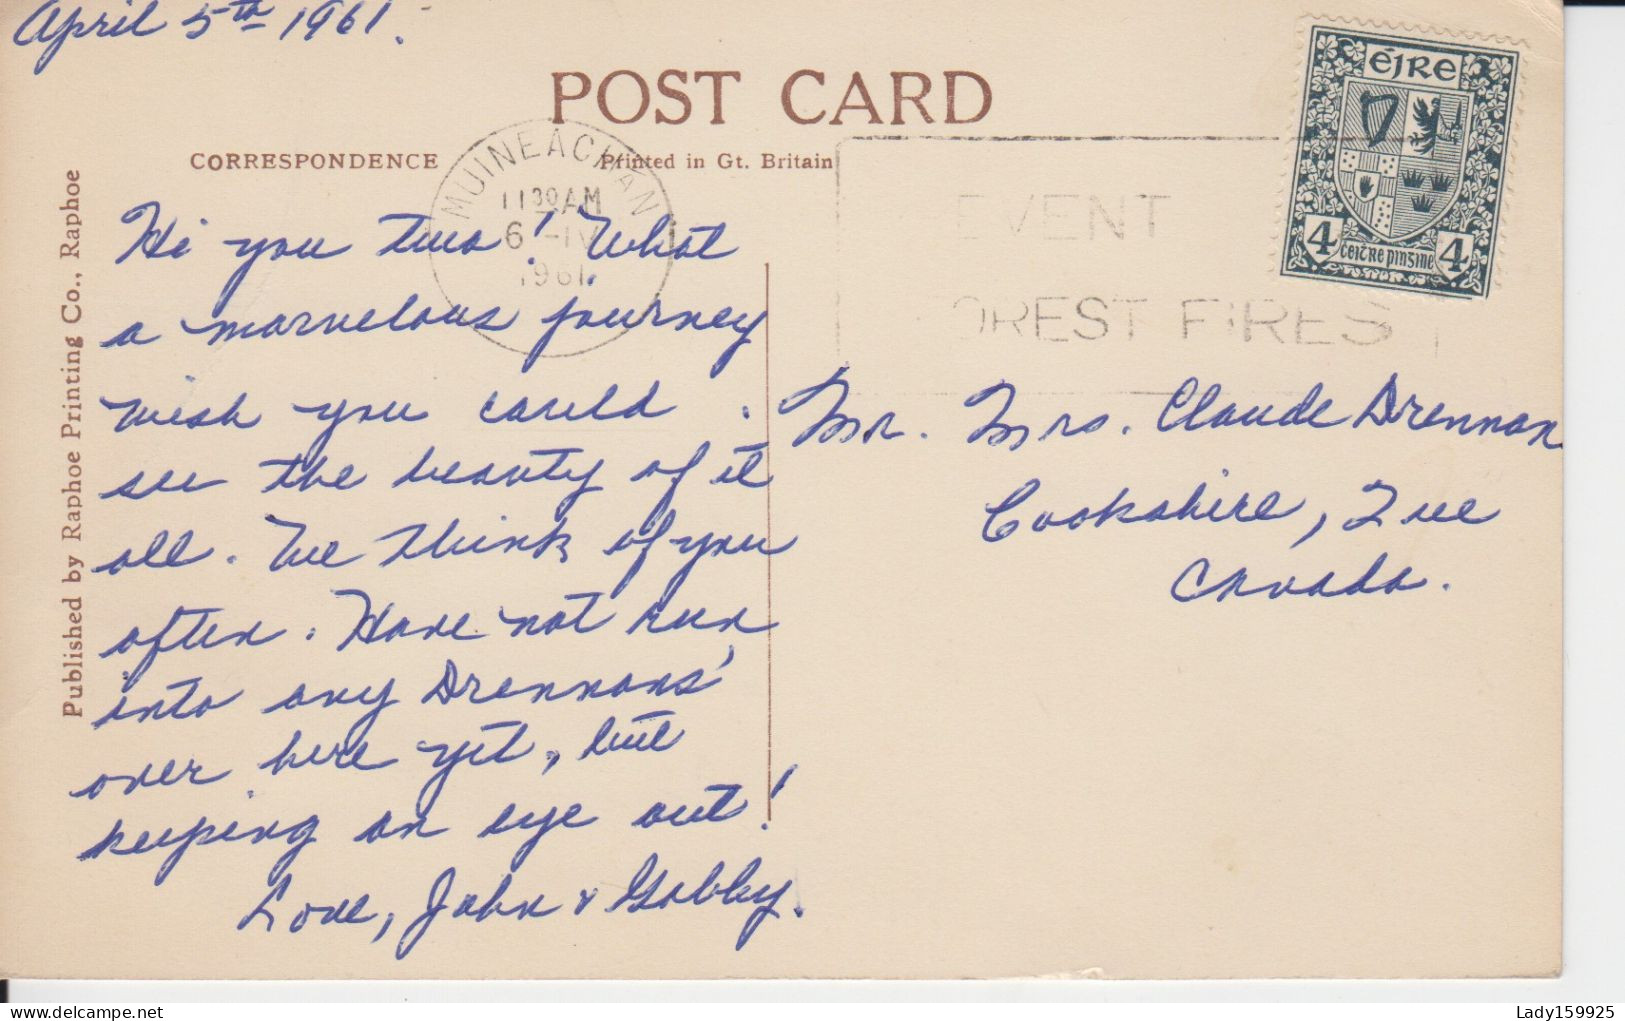 April 5th 1961.
POST CARD
CORRESPONDENCE
Printed in Gt. Britain
Published by Raphoe Printing Co., Raphoe
MUINEACHAN
11 30 AM
6 -IV
1961
EVENT
OREST FIRES
ÉIRE
4 ceitre pinzine 4
Hi you two! What
a marvelous journey
wish you could
see the beauty of it
all. We think of you
often. Have not run
into any Drennans'
over here yet, but
keeping an eye out!
Love, John & Gabby.
Mr. Mrs. Claude Drennan
Cookshire, Que
Canada.
delcampe.net
Lady159925